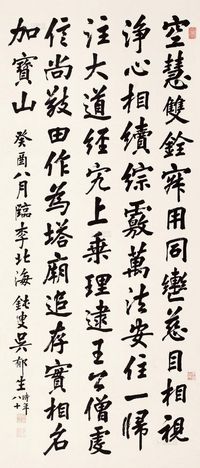 空慧雙銓寂用同轡慈目相視
淨心相續綜覈萬法安住一歸
注大道經究上乘理逮王公僧虔
信尚敬田作為塔廟追存實相名
加寶山 癸酉八月臨李北海 鈍叟吳郁生時年八十